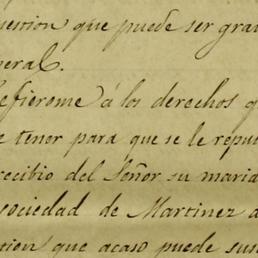 uestion que puede ser gra
neral.
Refierome á los derechos q
e tenor para que se le repu
recibio del Señor su marid
sociedad de Martinez a
tion que acaso puede sus